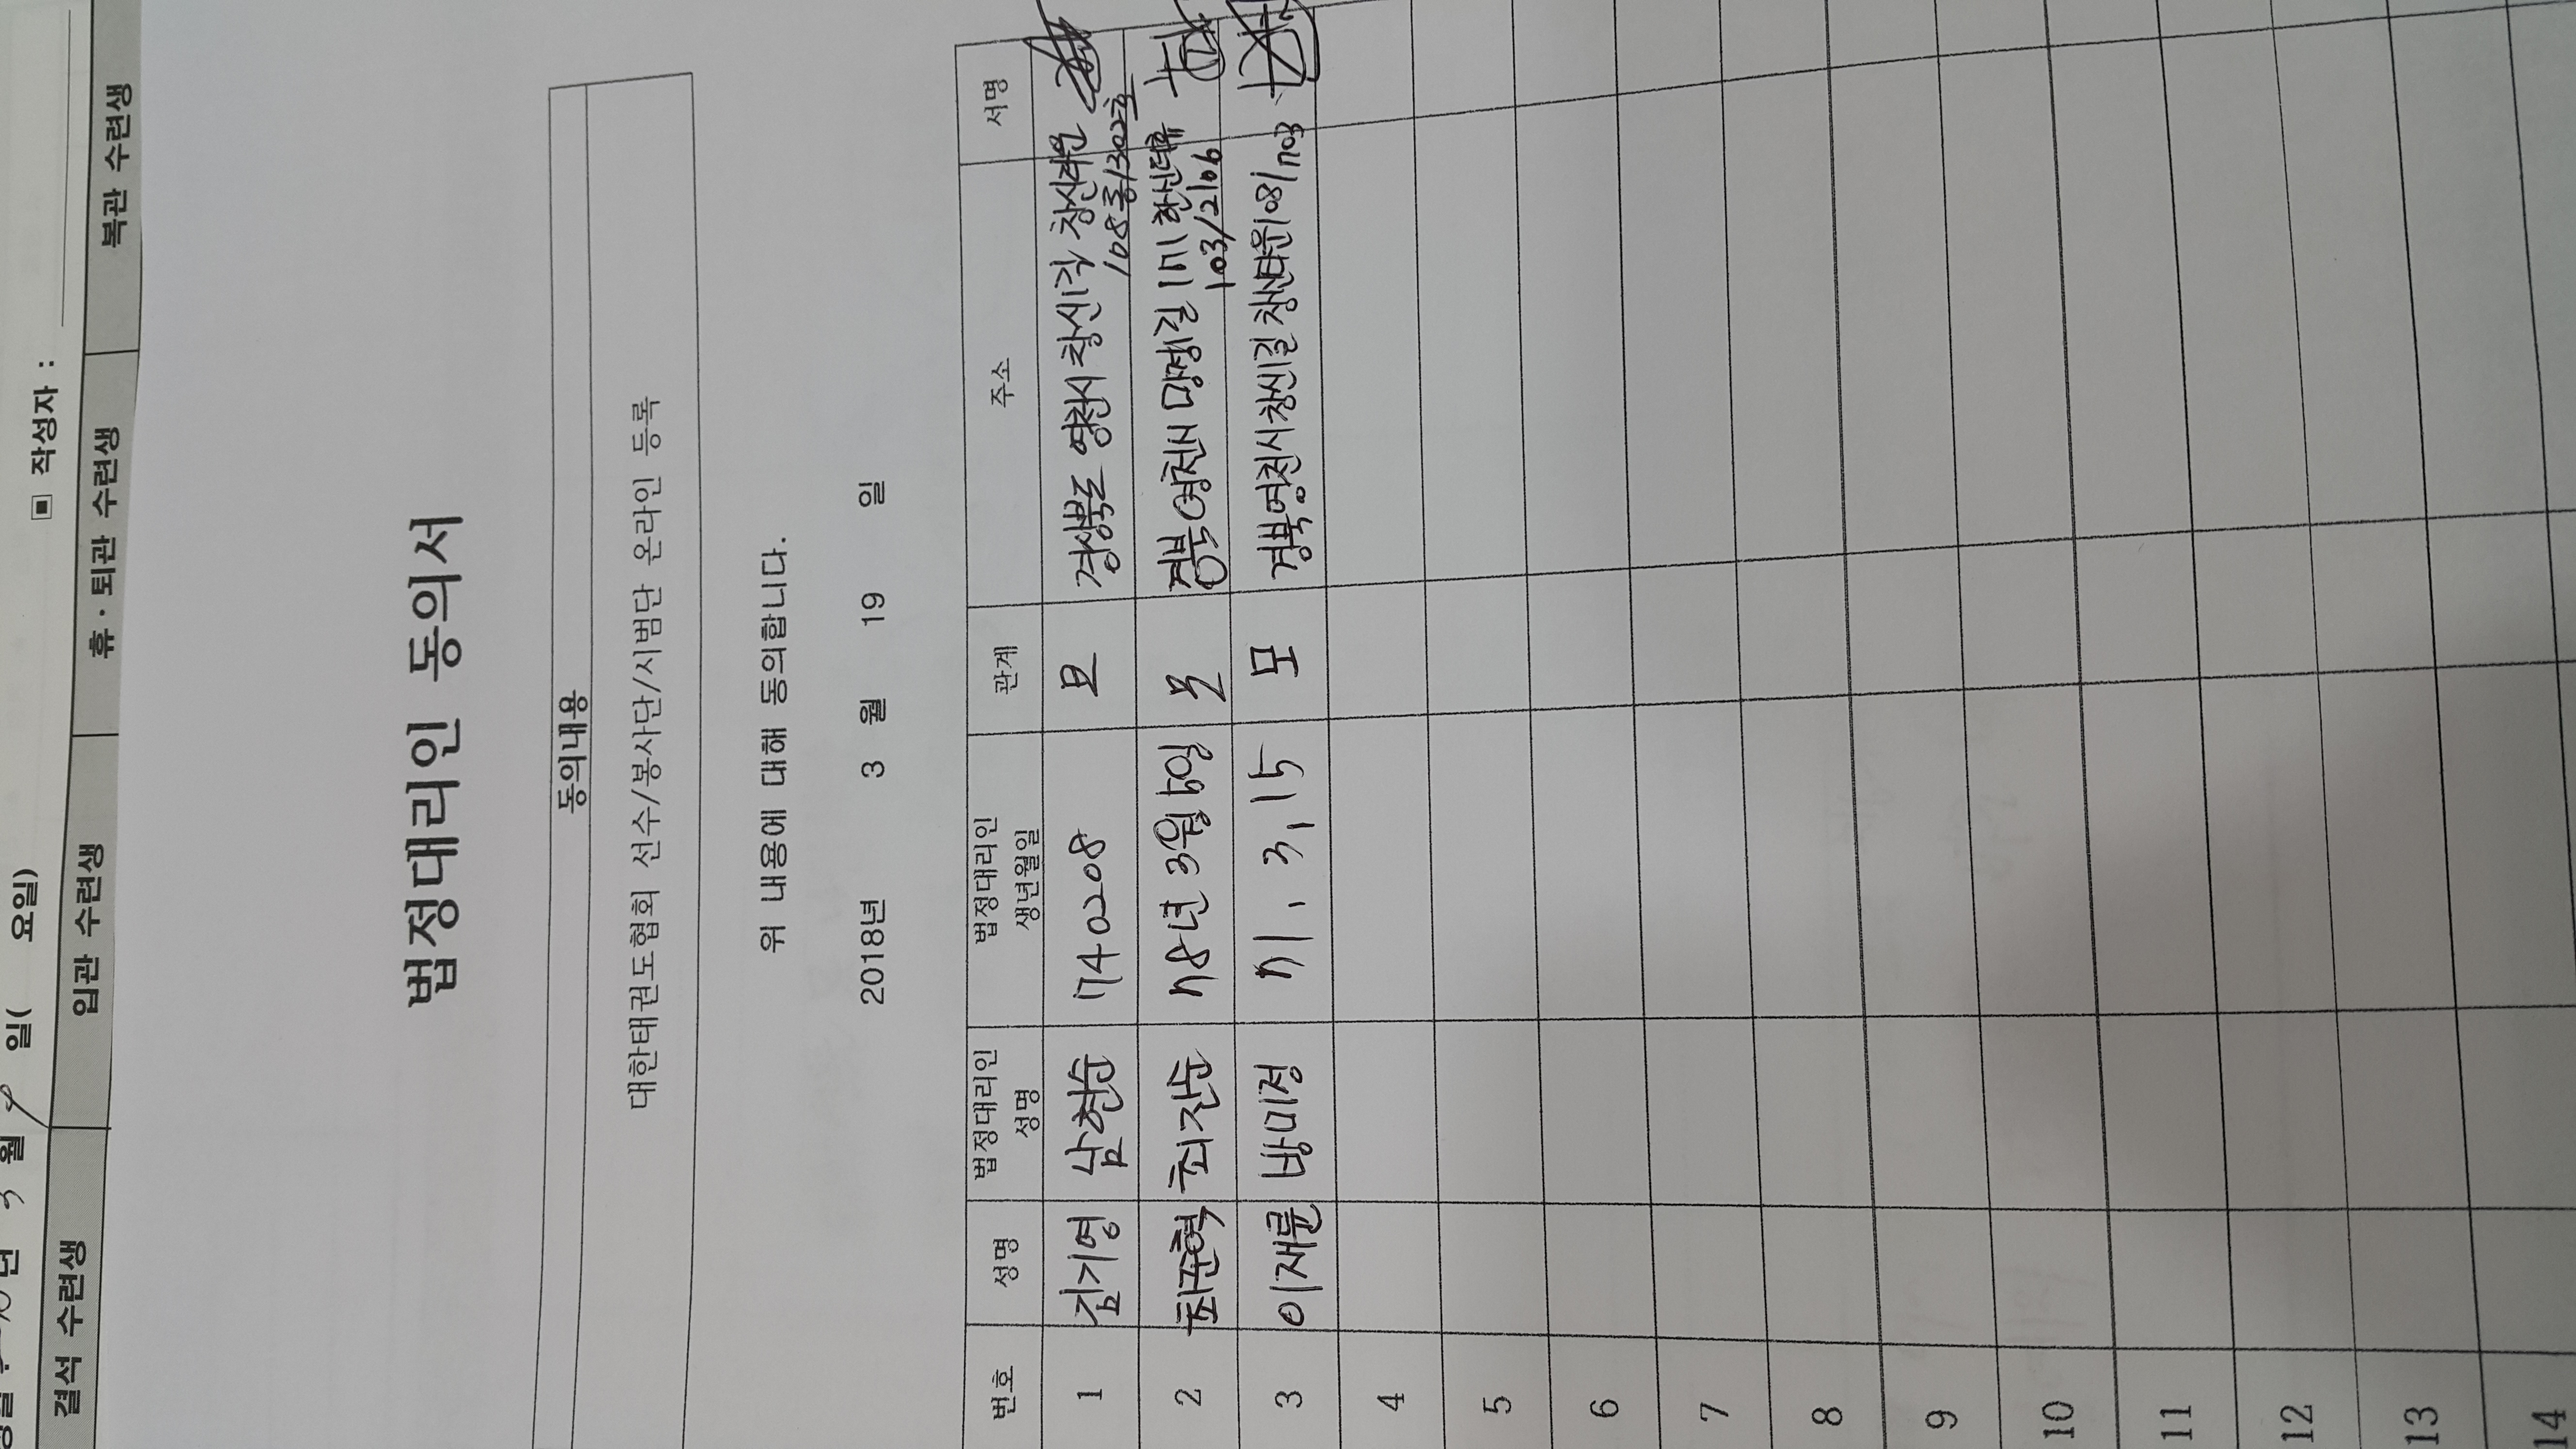 ■ 작성자 :
일( 요일)
결석 수련생 입관 수련생 휴·퇴관 수련생 복관 수련생
법정대리인 동의서
동의내용
대한태권도협회 선수/봉사단/시범단 온라인 등록
위 내용에 대해 동의합니다.
2018년 3 월 19 일
번호 성명 법정대리인 성명 법정대리인 생년월일 관계 주소 서명
1 김기영 남현순 740208 모 경상북도 영천시 창신길
108동/302호
2 최준혁 최진순 78년 3월 5일 모 경북 영천시 망정길 171
103/2106
3 이재륜 방미정 71. 3. 15 모 경북 영천시 창신길 창신타운 108/1703
4
5
6
7
8
9
10
11
12
13
14